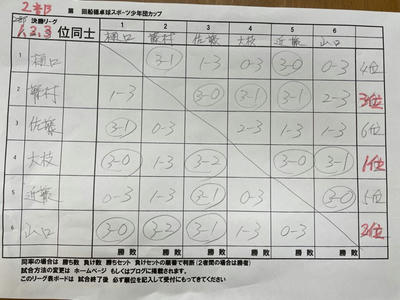 2部
第 回船橋卓球スポーツ少年団カップ
2部 決勝リーグ
1,2,3 位同士
1 2 3 4 5 6
樋口 村 佐藤 大枝 近藤 山口
1 樋口 3-1 1-3 0-3 3-0 0-3 4位
2 村 1-3 3-0 3-1 3-1 2-3 3位
3 佐藤 3-1 0-3 2-3 1-3 1-3 6位
4 大枝 3-0 1-3 3-2 3-0 3-1 1位
5 近藤 0-3 1-3 3-1 0-3 3-0 5位
6 山口 3-0 3-2 3-1 1-3 0-3 2位
勝敗 勝敗 勝敗 勝敗 勝敗 勝敗
同率の場合は 勝ち数 負け数 勝ちセット 負けセットの順番で判断(2者間の場合は勝者)
試合方法の変更は ホームページ もしくはブログに掲載されます。
このリーグ表ボードは 試合終了後 必ず順位を記入して受付にもってきてください